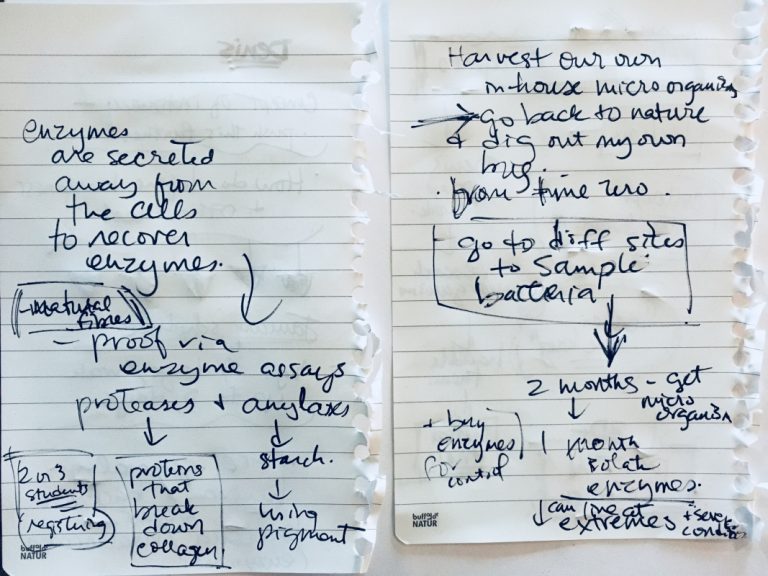 enzymes
are secreted
away from
the cells
to recover
enzymes.
natural
fibres
- proof via
enzyme assays
proteases + amylases
2 or 3
students
registering
proteins
that
break
down
collagen
starch.
using
pigment
buffalo
NATUR
Harvest our own
in-house micro organism
→ go back to nature
+ dig out my own
bug.
from time zero.
- go to diff sites
to sample
bacteria
2 months - get
micro
organism
+ buy
enzymes
for control
1 month
isolate
enzymes.
can live at
extremes + severe
conditions
buffalo
NATUR